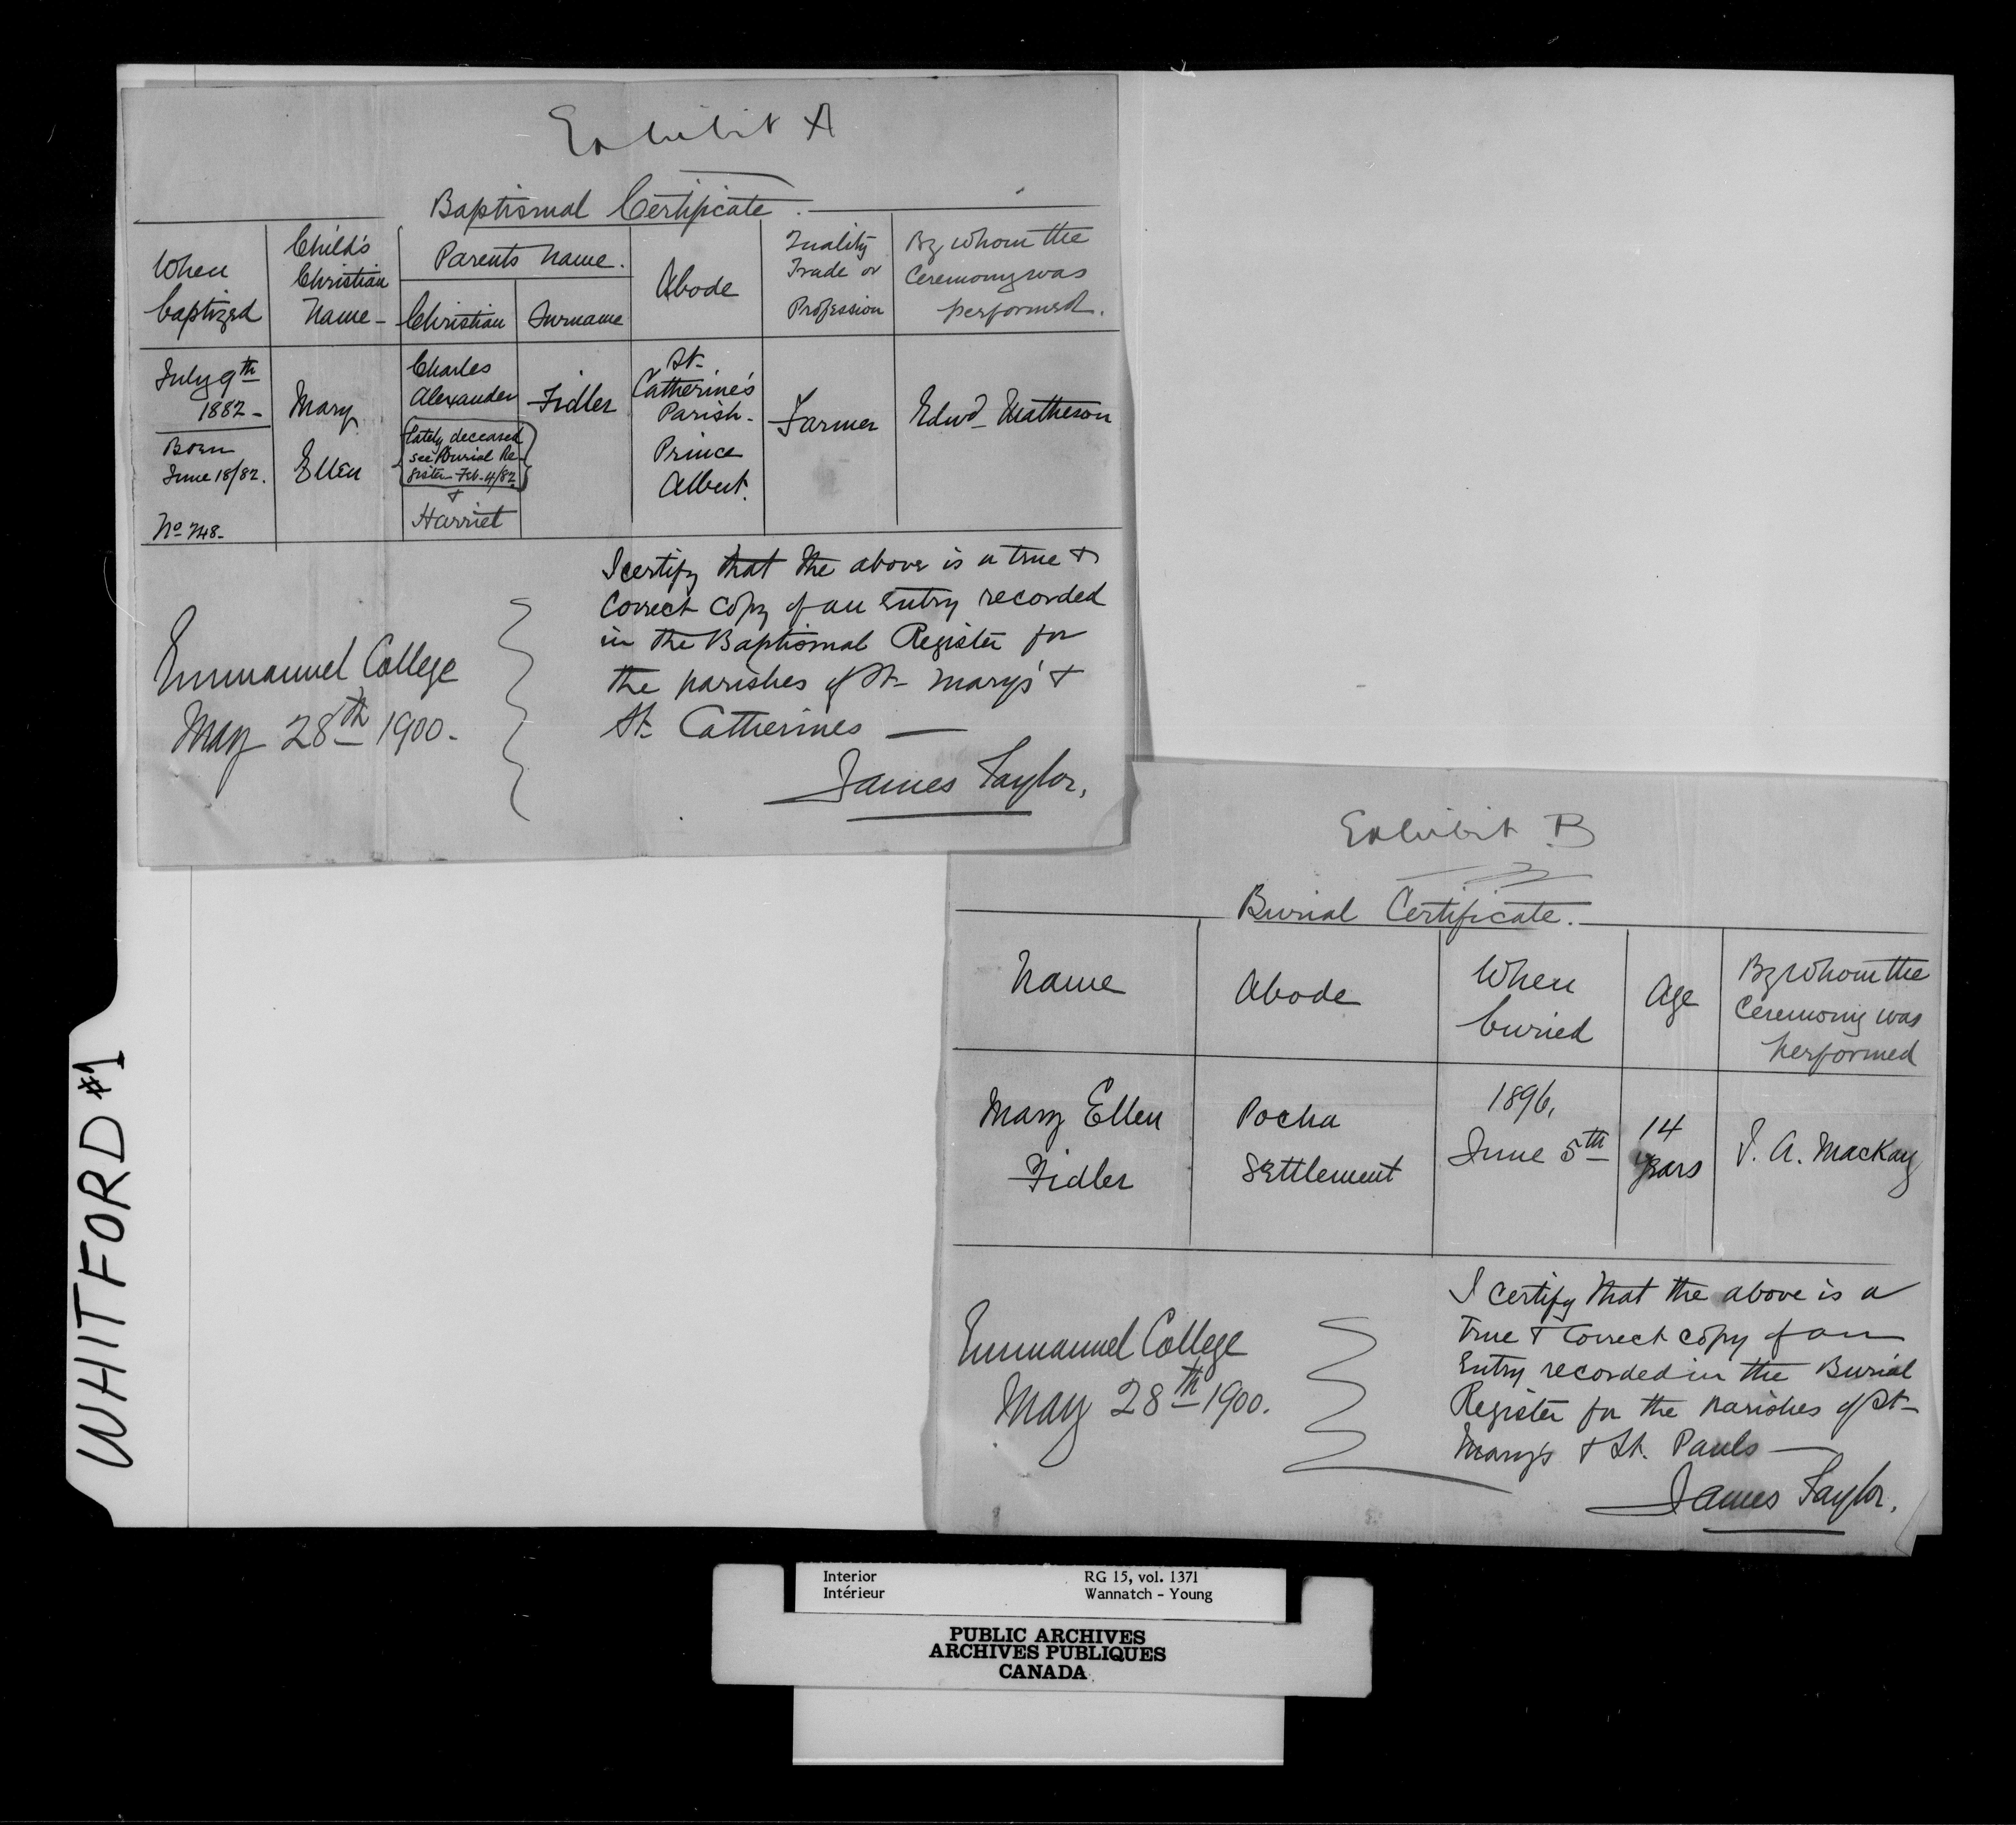 Exhibit A
Baptismal Certificate.
When
baptized
Child's
Christian
Name -
Parents Name.
Christian
Surname
Abode
Quality
Trade or
Profession
By whom the
Ceremony was
performed.
July 9th
1882 -
Born
June 18/82.
No 748.
Mary
Ellen
Charles
Alexander
(lately deceased
see Burial Re-
gister Feb. 4/82)
+
Harriet
Fidler
St.
Catherine's
Parish -
Prince
Albert.
Farmer
Edwd Matheson
I certify that the above is a true +
Correct Copy of an Entry recorded
in the Baptismal Register for
the parishes of St. Mary's +
St. Catherines —
James Taylor.
Emmanuel College
May 28th 1900.
Exhibit B
Burial Certificate.
Name
Abode
When
buried
Age
By whom the
Ceremony was
performed
Mary Ellen
Fidler
Pocha
Settlement
1896,
June 5th
14
years
J. A. Mackay
I certify that the above is a
true + Correct copy of an
Entry recorded in the Burial
Register for the parishes of St.
Mary's + St. Pauls —
James Taylor.
Emmanuel College
May 28th 1900.
WHITFORD #1
Interior
Intérieur
RG 15, vol. 1371
Wannatch - Young
PUBLIC ARCHIVES
ARCHIVES PUBLIQUES
CANADA